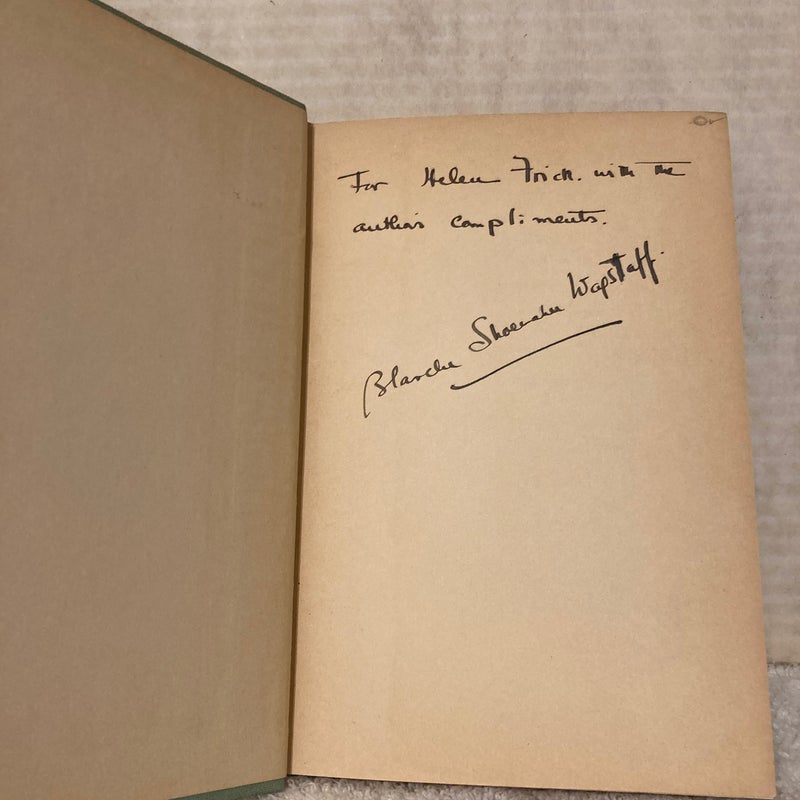 For Helen Frick. with the
author's compliments.
Blanche Shoemaker Wagstaff.